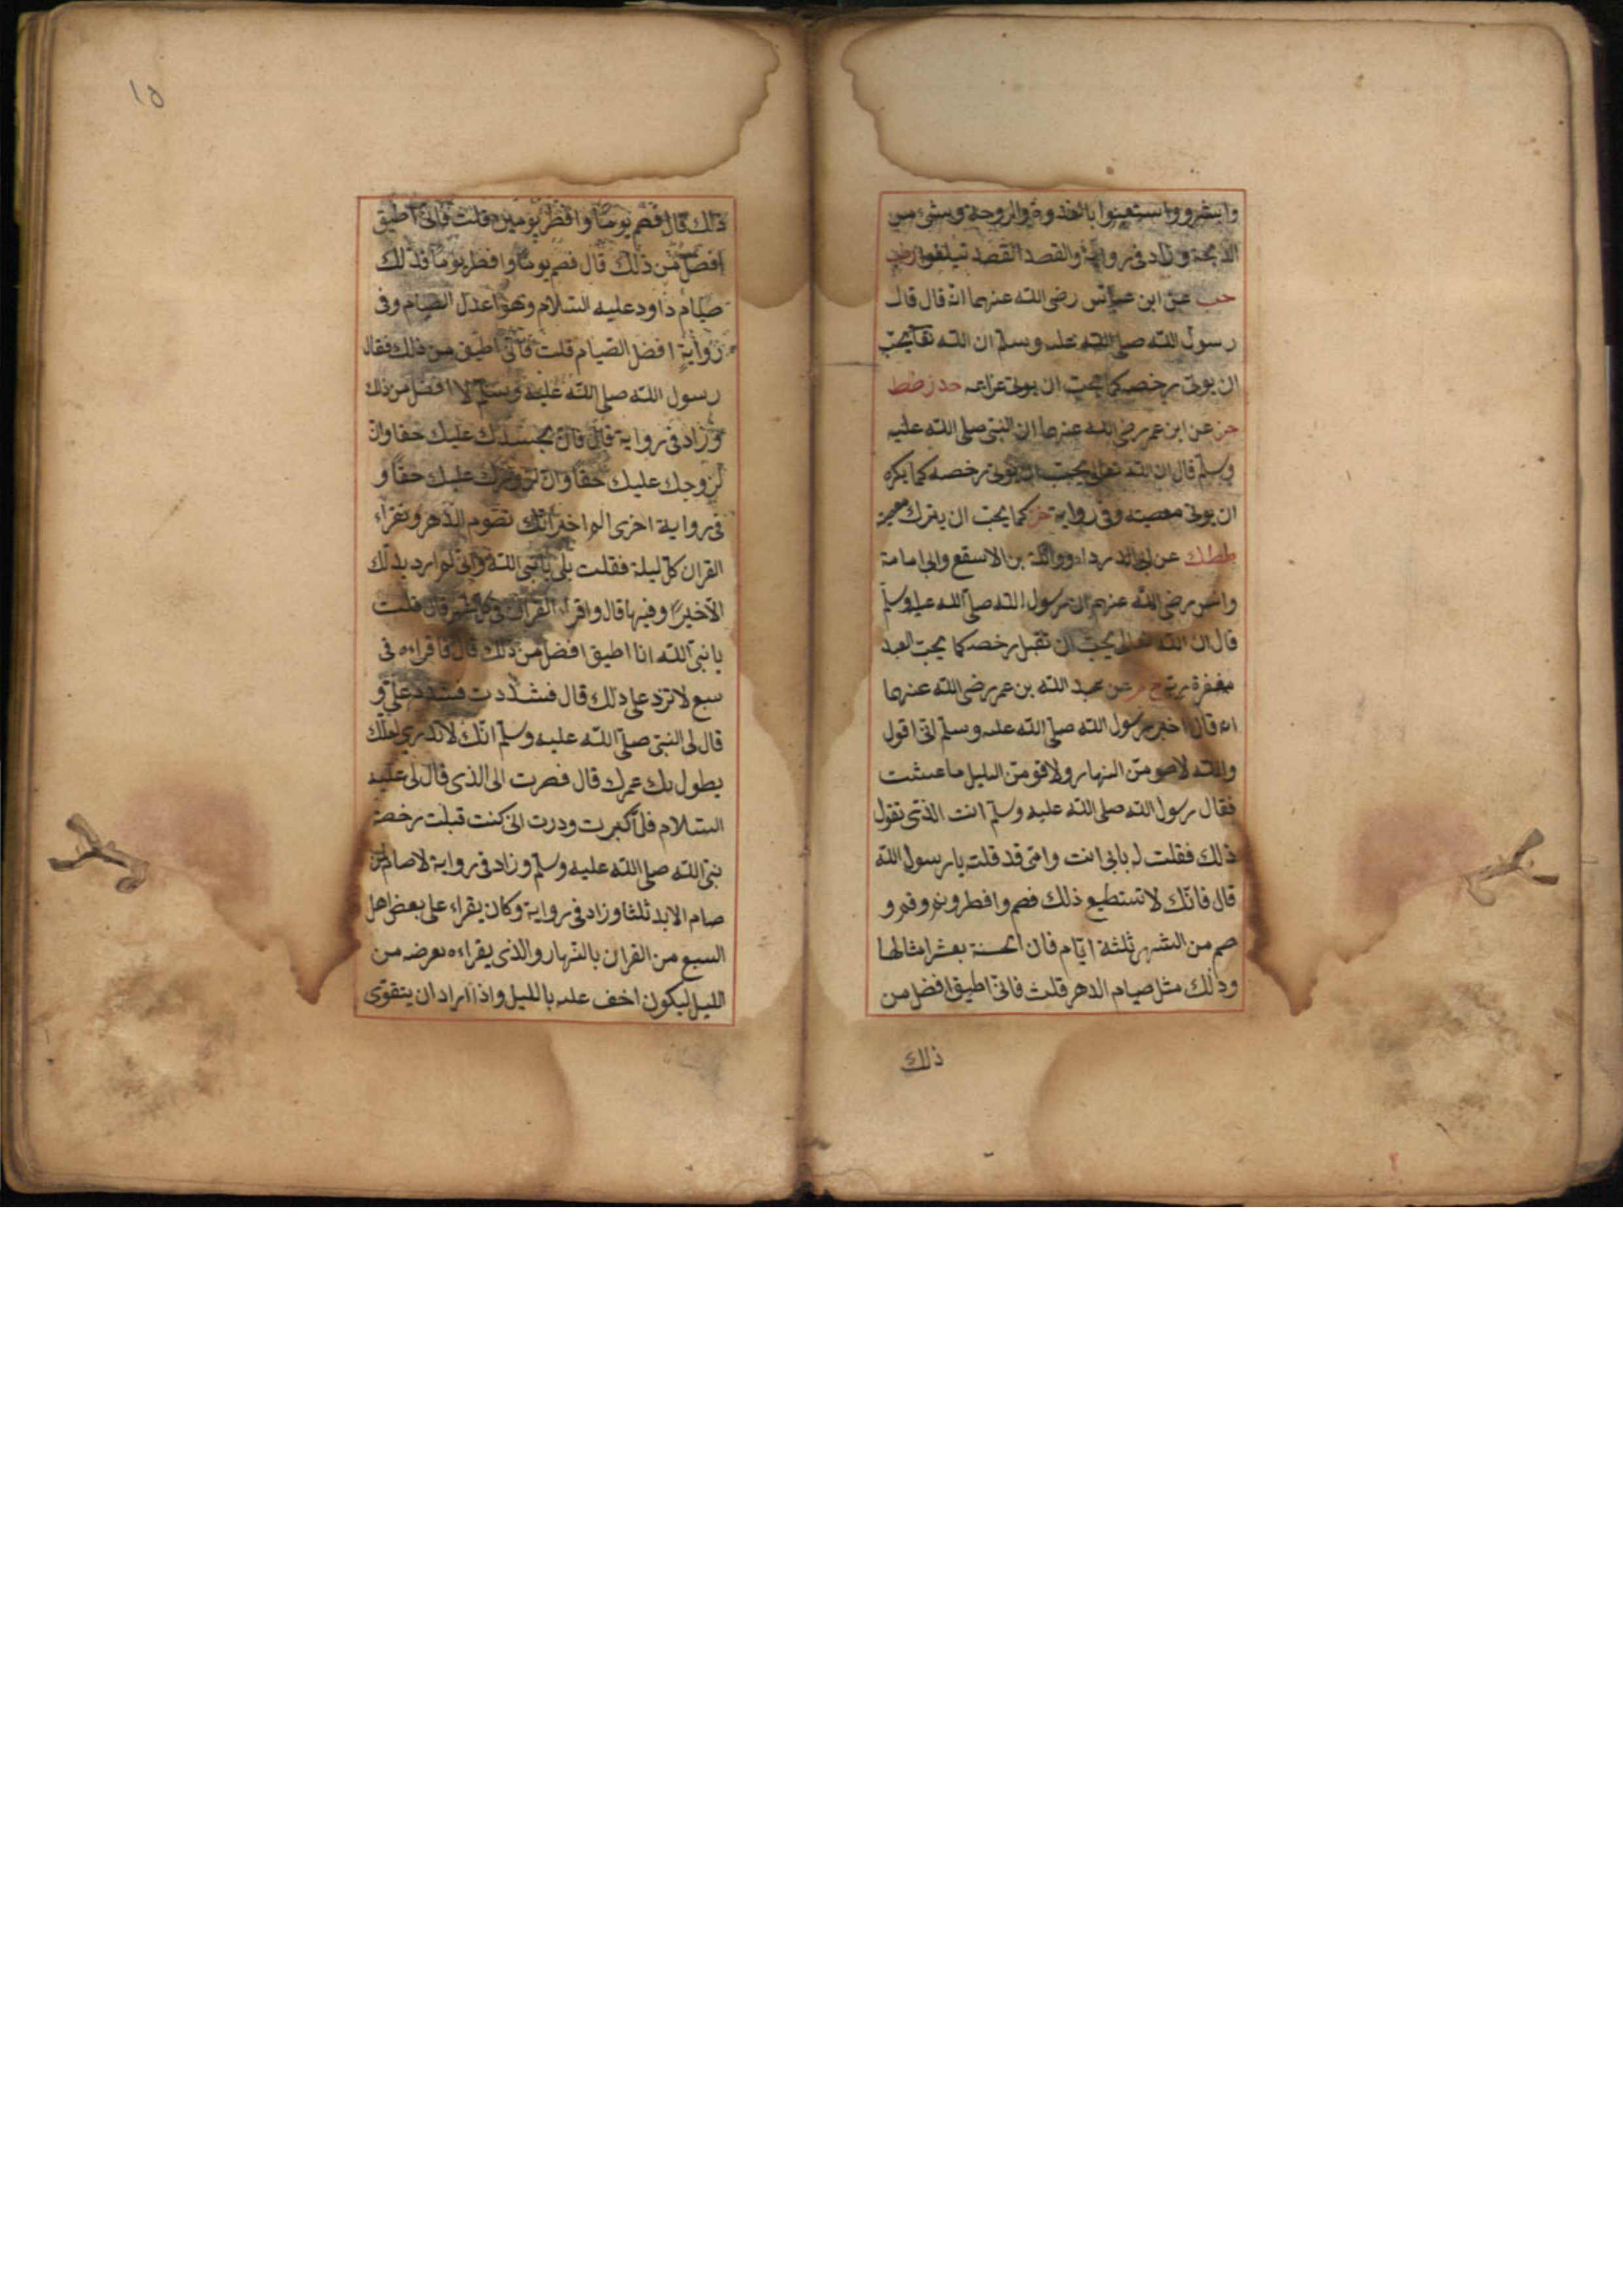 وابشروا واستعينوا بالغدوة والروحة وبشئ من
الدلجة وزاد في رواية والقصد القصد تبلغوا
حب عن ابن عباس رضى الله عنهما انه قال قال
رسول الله صلى الله عليه وسلم ان الله تعا يحب
ان يوتى رخصه كما يحب ان يوتى عزايمه حد ز طط
خز عن ابن عمر رضى الله عنهما ان النبى صلى الله عليه
وسلم قال ان الله تعالى يحب ان يوتى رخصه كما يكره
ان يوتى معصيته وفى رواية خز كما يحب ان يترك معصيته
ططك عن ابى الدرداء وواثلة بن الاسقع وابى امامة
وانس رضى الله عنهم ان رسول الله صلى الله عليه وسلم
قال ان الله تعالى يحب ان تقبل رخصه كما يحب العبد
مغفرة ربه خ م عن عبد الله بن عمر رضى الله عنهما
انه قال اخبر رسول الله صلى الله عليه وسلم انى اقول
والله لاصومن النهار ولاقومن الليل ما عشت
فقال رسول الله صلى الله عليه وسلم انت الذى تقول
ذلك فقلت له بابى انت وامى قد قلته يا رسول الله
قال فانك لا تستطيع ذلك فصم وافطر ونم وقم و
صم من الشهر ثلثة ايام فان الحسنة بعشر امثالها
وذلك مثل صيام الدهر قلت فانى اطيق افضل من
ذلك
١٥
ذلك قال فصم يوما وافطر يومين قلت فانى اطيق
افضل من ذلك قال فصم يوما وافطر يوما فذلك
صيام داود عليه السلام وهو اعدل الصيام وفى
رواية افضل الصيام قلت فانى اطيق من ذلك فقال
رسول الله صلى الله عليه وسلم لا افضل من ذلك
وزاد فى رواية قال فان لجسدك عليك حقا وان
لزوجك عليك حقا وان لزورك عليك حقا و
فى رواية اخرى الم اخبر انك تصوم الدهر وتقراء
القران كل ليلة فقلت بلى يا نبى الله وانى لم ارد بذلك
الا خيرا وفيها قال واقراء القران فى كل شهر قال قلت
يا نبى الله انا اطيق افضل من ذلك قال فاقراءه فى
سبع لا تزد على ذلك قال فشددت فشدد على و
قال لى النبى صلى الله عليه وسلم انك لا تدرى لعلك
يطول بك عمرك قال فصرت الى الذى قال لى عليه
السلام فلما كبرت وددت انى كنت قبلت رخصة
نبى الله صلى الله عليه وسلم وزاد فى رواية لا صام من
صام الابد ثلثا وزاد فى رواية وكان يقراء على بعض اهل
السبع من القران بالنهار والذى يقراءه يعرضه من
الليل ليكون اخف عليه بالليل واذا اراد ان يتقوى